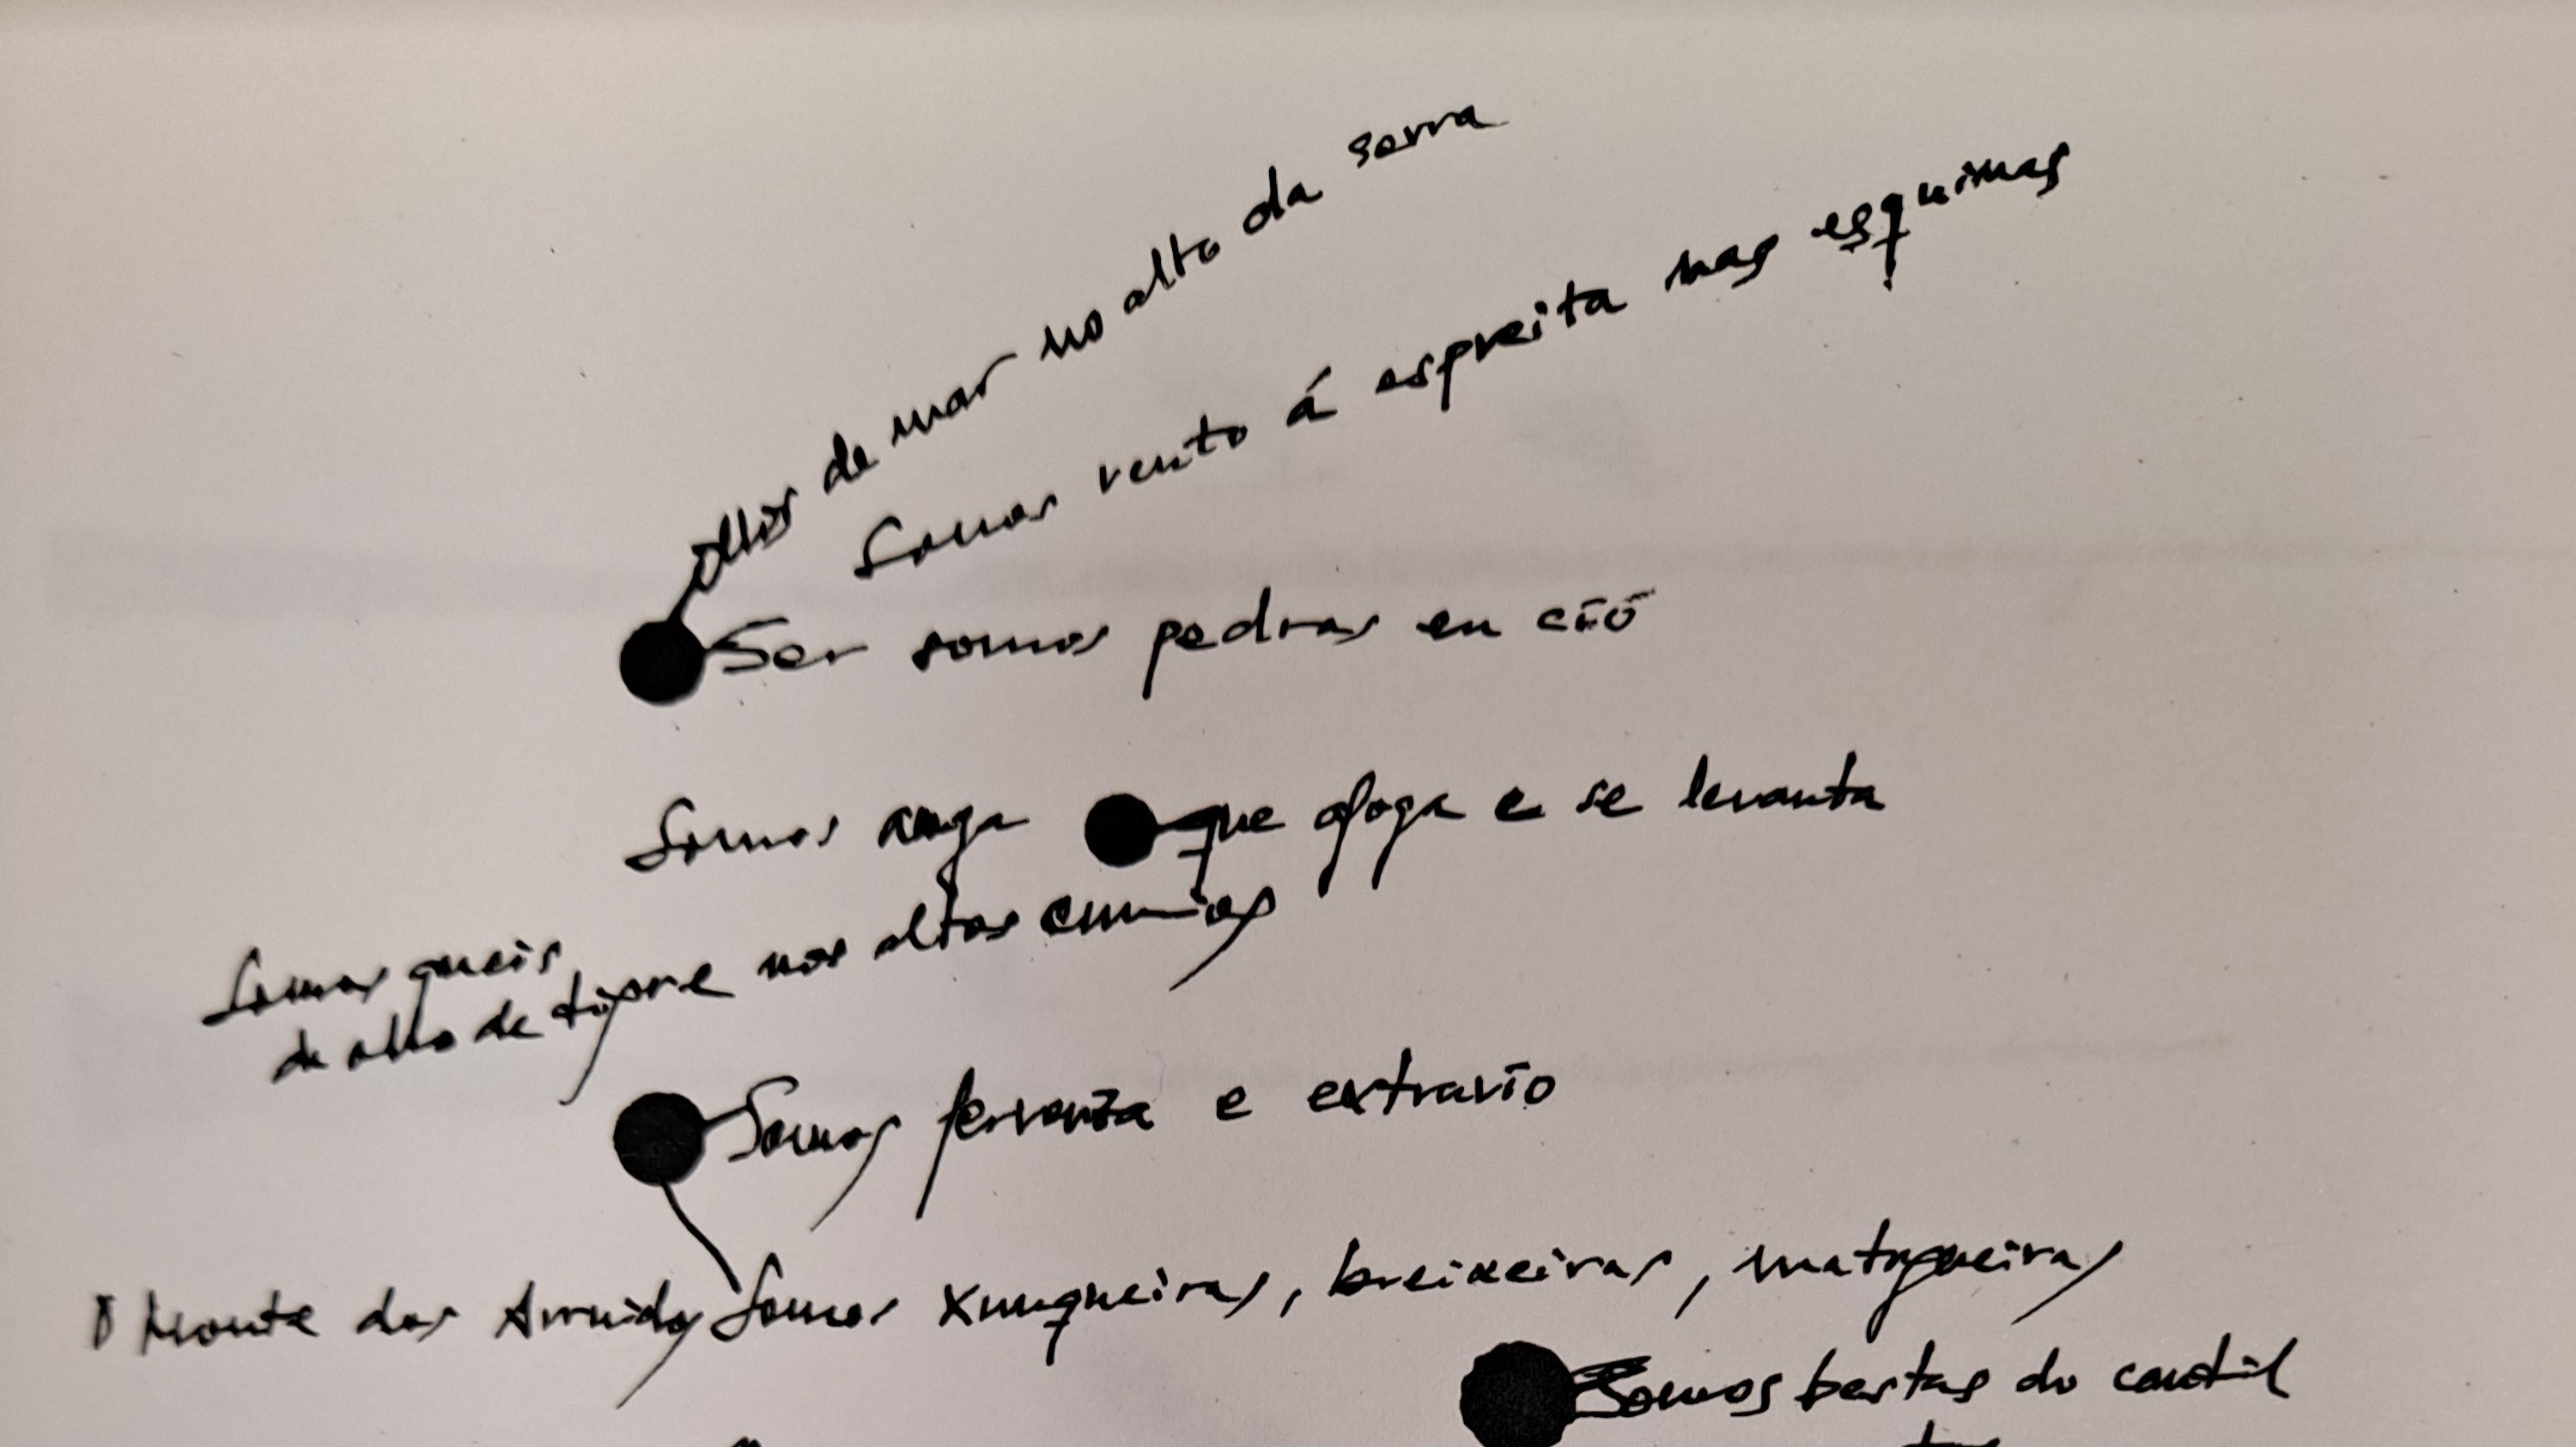 ollos de mar no alto da serra
Somos vento á espreita nas esquinas
Ser somos pedras en cío
Somos auga que afoga e se levanta
Somos
de alto de nos altos cumios
Somos fervenza e extravío
O Monte dos Arruídos Somos xunqueiras, breixeiras, matogueiras
Somos bestas do cantil